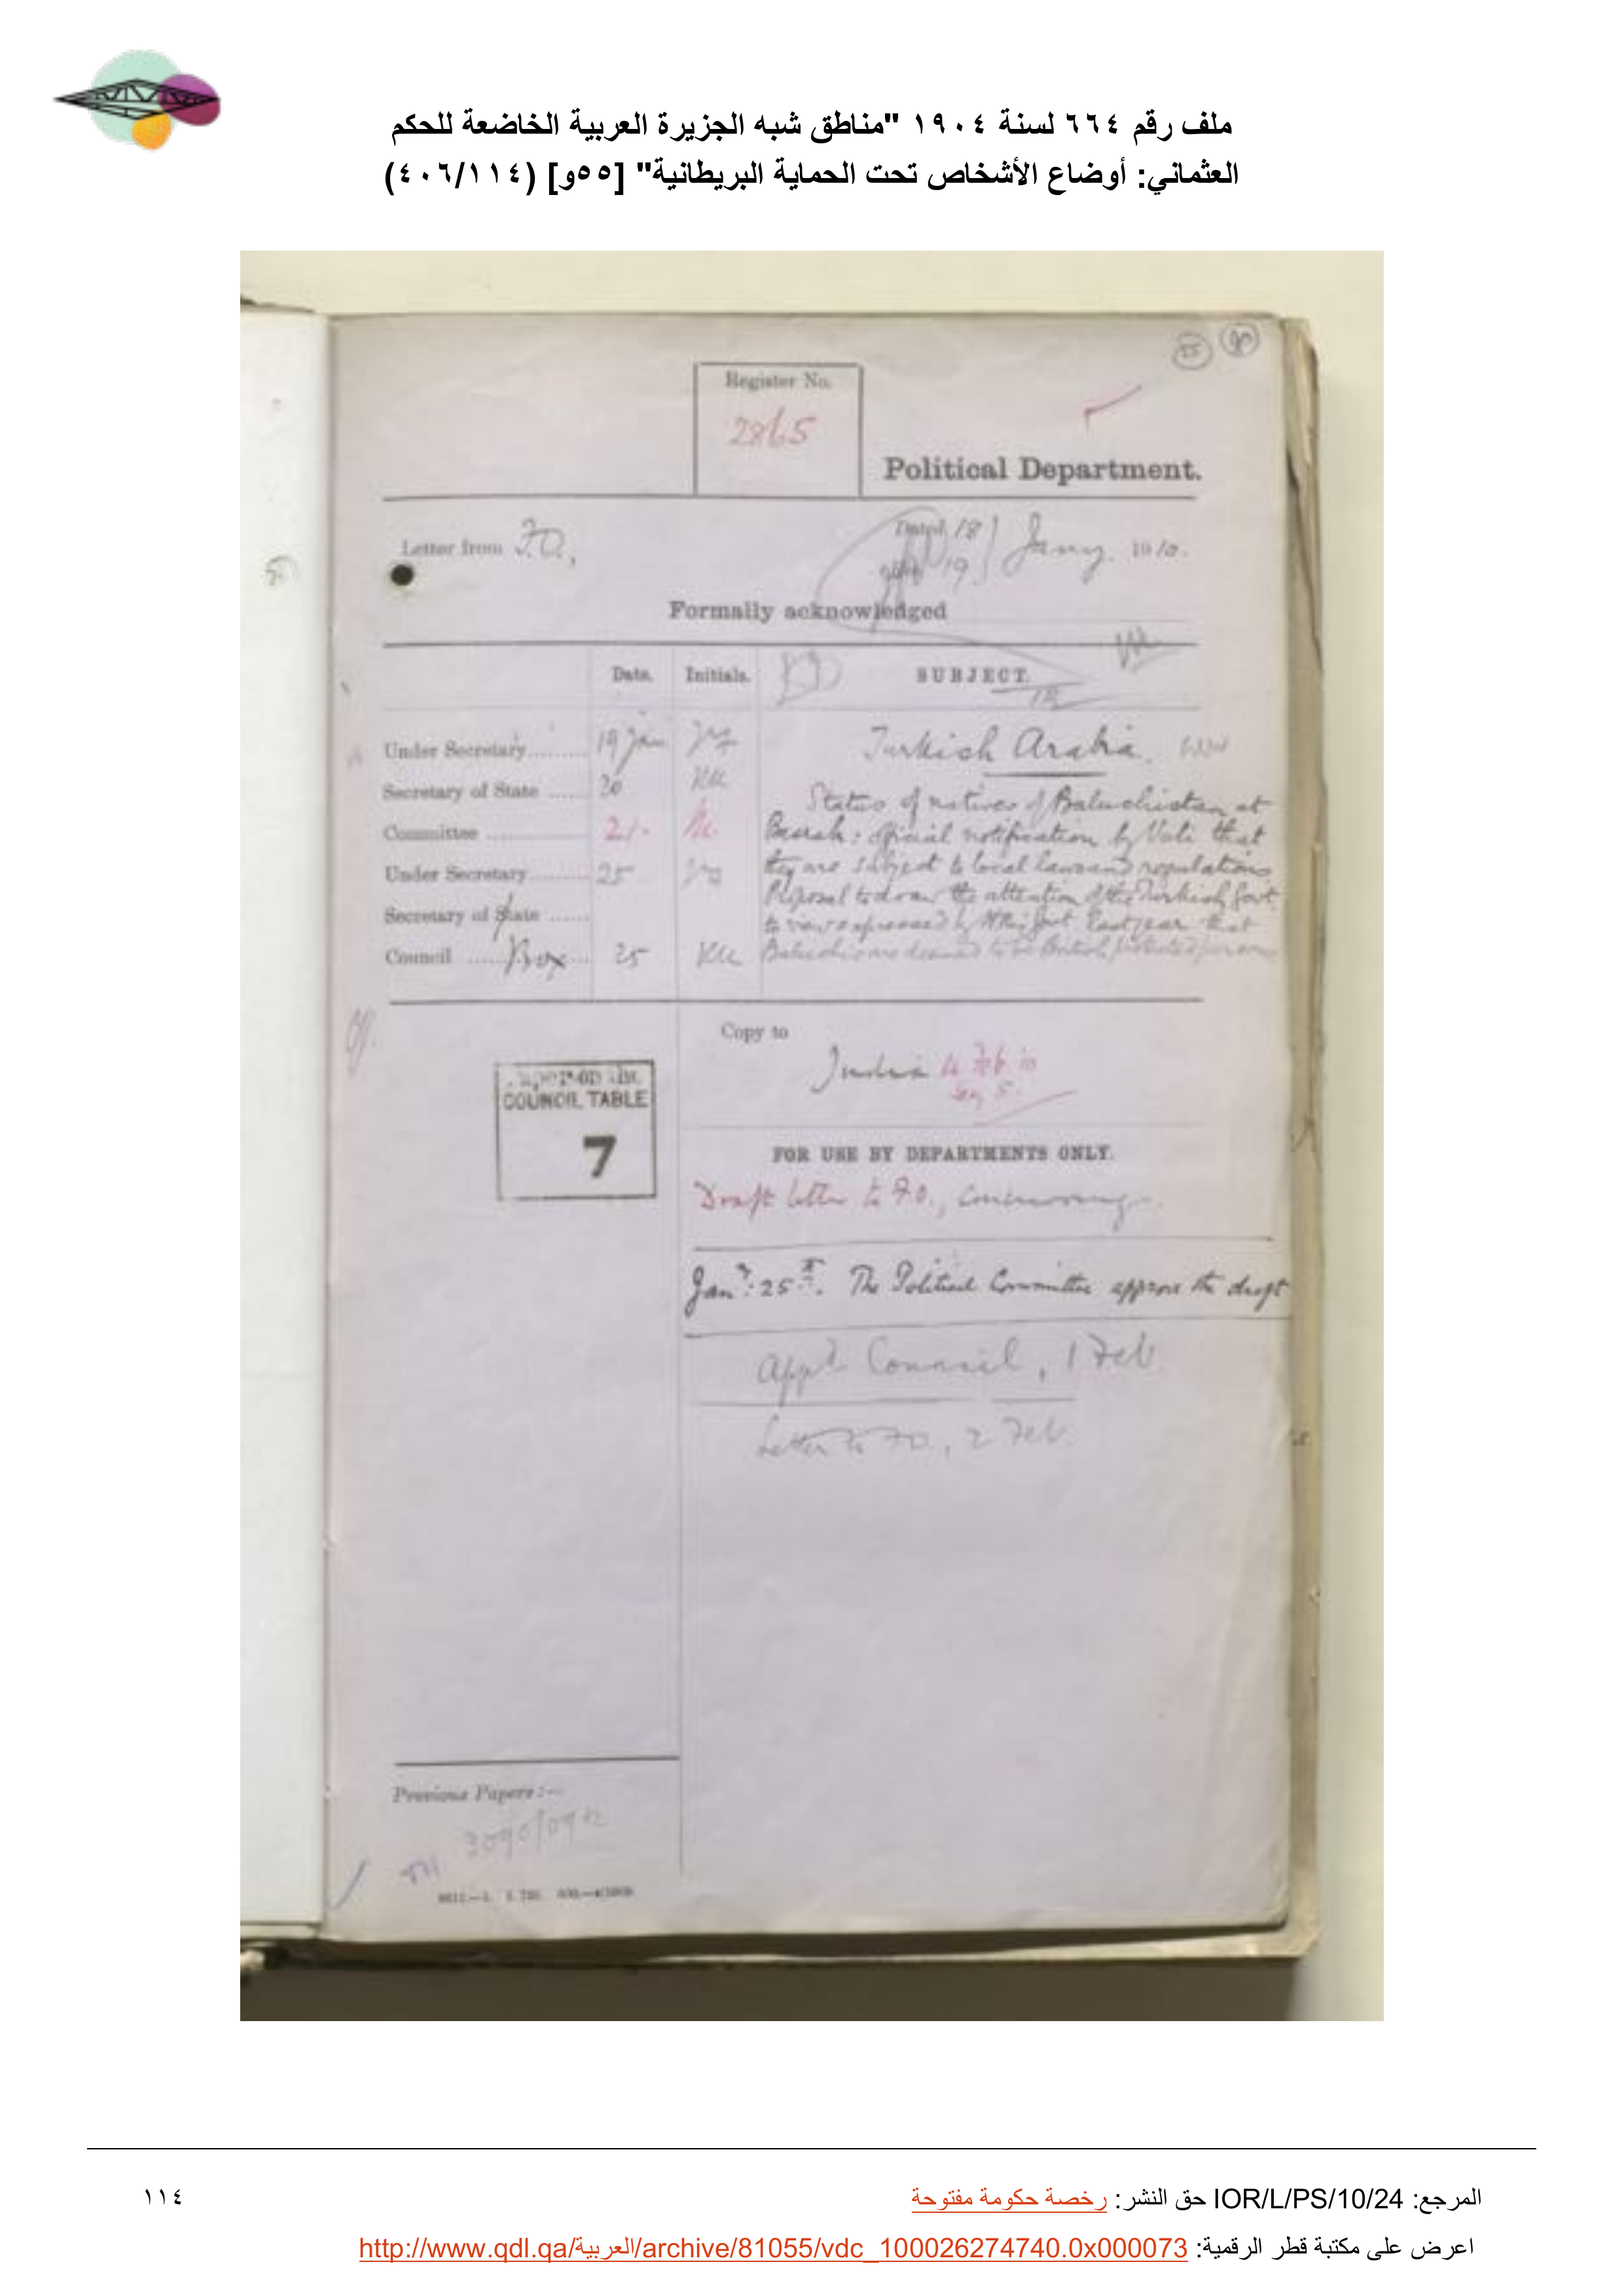 ملف رقم ٦٦٤ لسنة ١٩٠٤ "مناطق شبه الجزيرة العربية الخاضعة للحكم
العثماني: أوضاع الأشخاص تحت الحماية البريطانية" [٥٥و] (٤٠٦/١١٤)
55 90
Register No.
2865
Political Department.
Letter from F.O.,
Dated 18
19 Jany. 1910.
Formally acknowledged
Date. Initials. SUBJECT.
Under Secretary......... 19 Jan
Secretary of State ...... 20
Committee ............... 21.
Under Secretary......... 25
Secretary of State ......
Council ...... Box 25
Turkish Arabia.
Status of natives of Baluchistan at
Basrah: official notification by Vali that
they are subject to local laws and regulations
Proposal to draw the attention of the Turkish Govt.
to views expressed by Govt last year that
Baluchis are deemed to be British protected persons
Copy to
India 4 Feb 10
Sec. 5.
COUNCIL TABLE
7
FOR USE BY DEPARTMENTS ONLY.
Draft letter to F.O., concurring.
Jany. 25th. The Political Committee approve the draft
Appd. Council, 1 Feb.
Letter to F.O., 2 Feb.
Previous Papers:—
3090/09
١١٤
المرجع: IOR/L/PS/10/24 حق النشر: رخصة حكومة مفتوحة
اعرض على مكتبة قطر الرقمية: http://www.qdl.qa/العربية/archive/81055/vdc_100026274740.0x000073